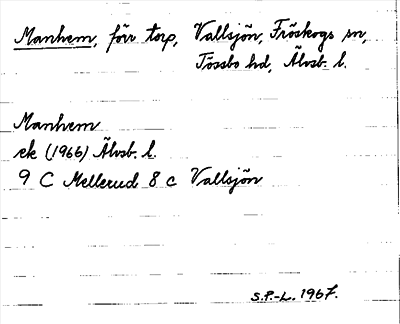 Manhem, förr torp, Vallsjön, Fröskogs sn,
Tössbo hd, Älvsb. l.
Manhem
ek (1966) Älvsb. l.
9 C Mellerud 8 c Vallsjön
S.P.-L. 1967.